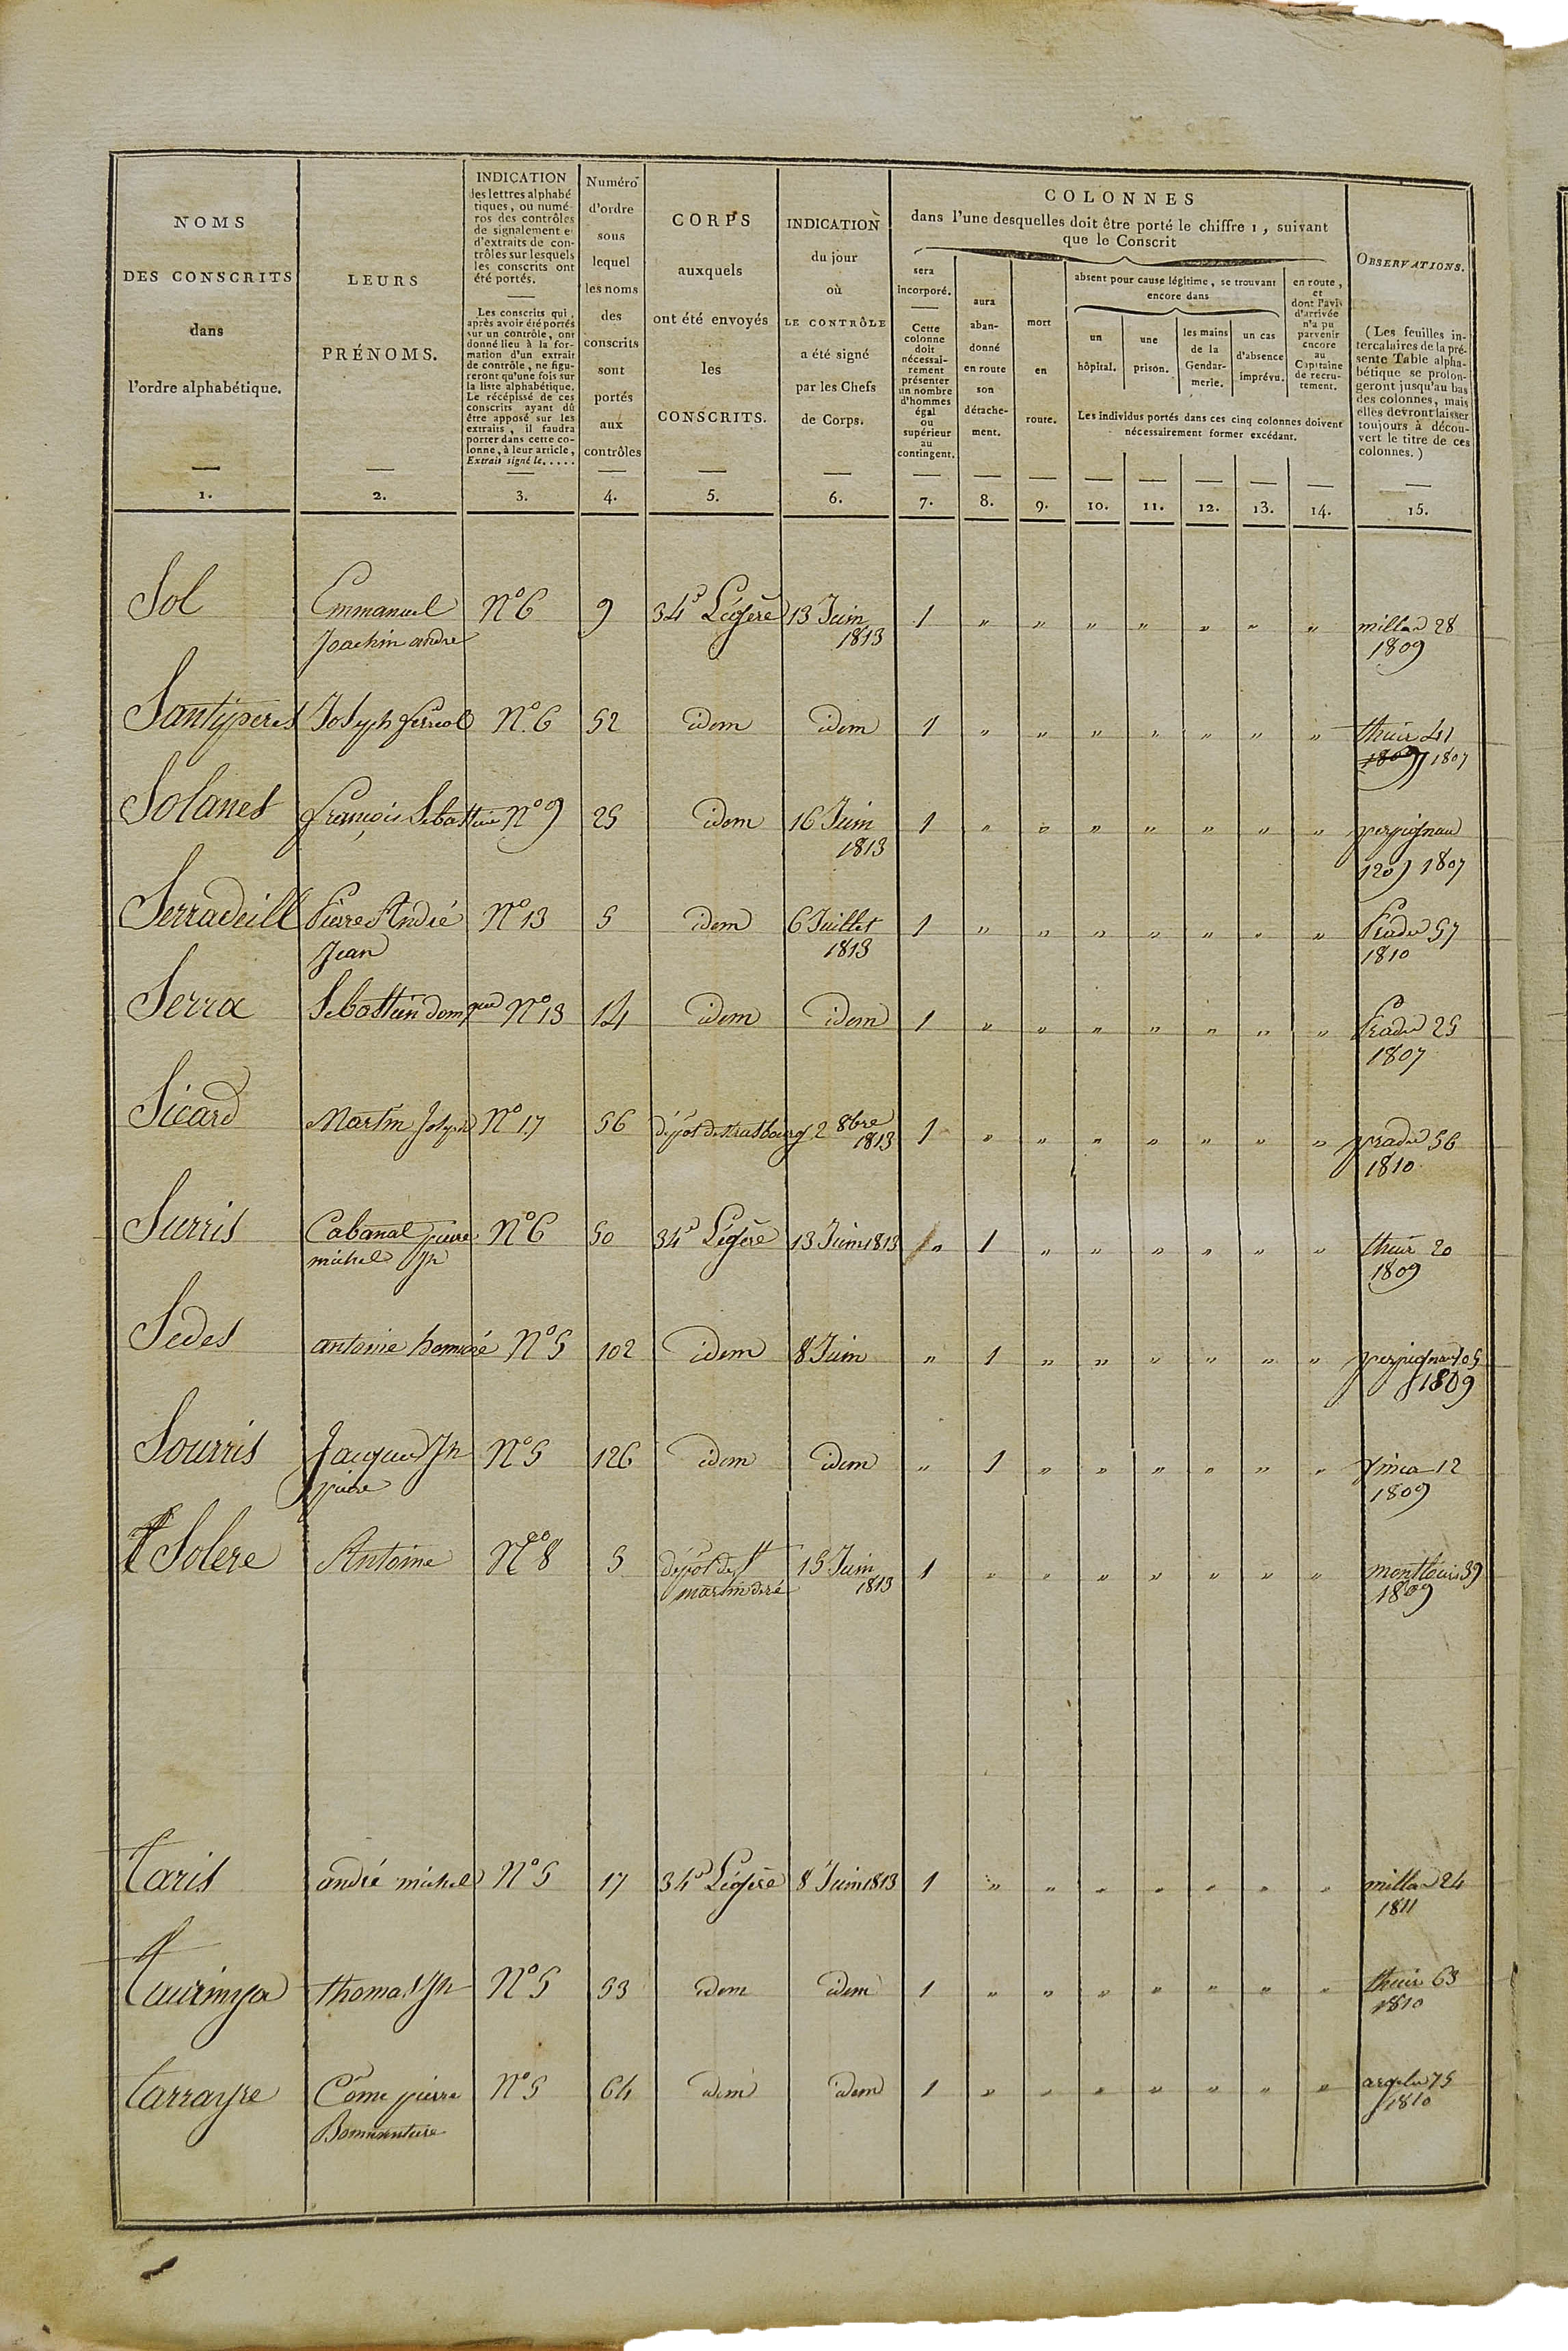 NOMS
DES CONSCRITS
dans
l'ordre alphabétique.
1.
LEURS
PRÉNOMS.
2.
INDICATION
des lettres alphabé
tiques, ou numé-
ros des contrôles
de signalement et
d'extraits de con-
trôles sur lesquels
les conscrits ont
été portés.
Les conscrits qui,
après avoir été portés
sur un contrôle, ont
donné lieu à la for-
mation d'un extrait
de contrôle, ne figu-
reront qu'une fois sur
la liste alphabétique.
Le récépissé de ces
conscrits ayant dû
être apposé sur les
extraits, il faudra
porter dans cette co-
lonne, à leur article,
Extrait signé le.....
3.
Numéro
d'ordre
sous
lequel
les noms
des
conscrits
sont
portés
aux
contrôles
4.
CORPS
auxquels
ont été envoyés
les
CONSCRITS.
5.
INDICATION
du jour
où
LE CONTRÔLE
a été signé
par les Chefs
de Corps.
6.
COLONNES
dans l'une desquelles doit être porté le chiffre 1, suivant
que le Conscrit
sera
incorporé.
Cette
colonne
doit
nécessai-
rement
présenter
un nombre
d'hommes
égal
ou
supérieur
au
contingent.
7.
aura
aban-
donné
en route
son
détache-
ment.
8.
mort
en
route.
9.
absent pour cause légitime, se trouvant
encore dans
un
hôpital.
10.
une
prison.
11.
les mains
de la
Gendar-
merie.
12.
un cas
d'absence
imprévu.
13.
en route,
et
dont l'avis
d'arrivée
n'a pu
parvenir
encore
au
Capitaine
de recru-
tement.
14.
Les individus portés dans ces cinq colonnes doivent
nécessairement former excédant.
OBSERVATIONS.
(Les feuilles in-
tercalaires de la pré-
sente Table alpha-
bétique se prolon-
geront jusqu'au bas
des colonnes, mais
elles devront laisser
toujours à décou-
vert le titre de ces
colonnes.)
15.
Sol Emmanuel N° 6 9 34e Légère 13 Juin 1 " " " " " " " millas 28
Joachin andre 1813 1809
Santyperes Joseph ferreol N° 6 52 idem idem 1 " " " " " " " thuir 41
1809 1807
Solanes françois Sebastien N° 9 25 idem 16 Juin 1 " " " " " " " perpignan
1813 120 1807
Serradeill Pierre André N° 13 5 idem 6 Juillet 1 " " " " " " " Prades 57
Jean 1813 1810
Serra Sebastien domque N° 13 14 idem idem 1 " " " " " " " Prades 25
1807
Sicard Martin Joseph N° 17 56 dépôt de Strasbourg 2 8bre 1 " " " " " " " prades 56
1813 1810
Surris Cabanal pierre N° 6 50 34e Légère 13 Juin 1813 " 1 " " " " " " thuir 20
michel Jh 1809
Sedes antoine honnoré N° 5 102 idem 8 Juin " 1 " " " " " " perpignan 105
1809
Sourris Jacques Jh N° 5 126 idem idem " 1 " " " " " " vinca 12
pierre 1809
Solere Antoine N° 8 5 dépôt de St 15 Juin 1 " " " " " " " montlouis 39
martin de ré 1813 1809
Taris andré michel N° 5 17 34e Légère 8 Juin 1813 1 " " " " " " " millas 24
1811
Taurinya thomas Jh N° 5 53 idem idem 1 " " " " " " " thuir 63
1810
Tarrayre Côme pierre N° 5 64 idem idem 1 " " " " " " " argeles 75
Bonnaventure 1810